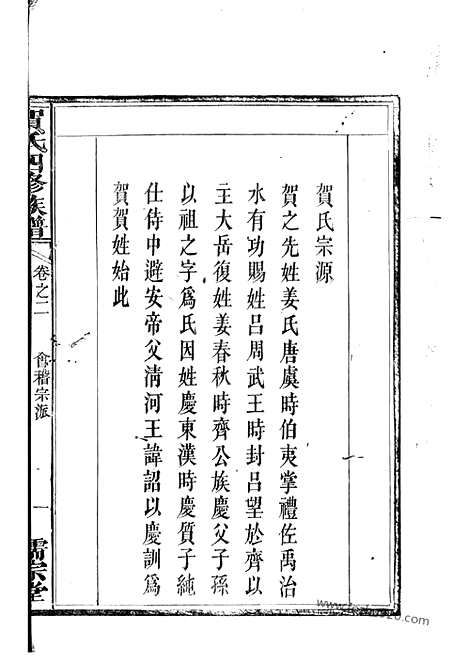 賀氏宗源
賀之先姓姜氏唐虞時伯夷掌禮佐禹治
水有功賜姓呂周武王時封呂望於齊以
主大岳復姓姜春秋時齊公族慶父子孫
以祖之字爲氏因姓慶東漢時慶質子純
仕侍中避安帝父淸河王諱詔以慶訓爲
賀賀姓始此
賀氏四修族譜
卷之二
會稽宗派
一
儒宗堂